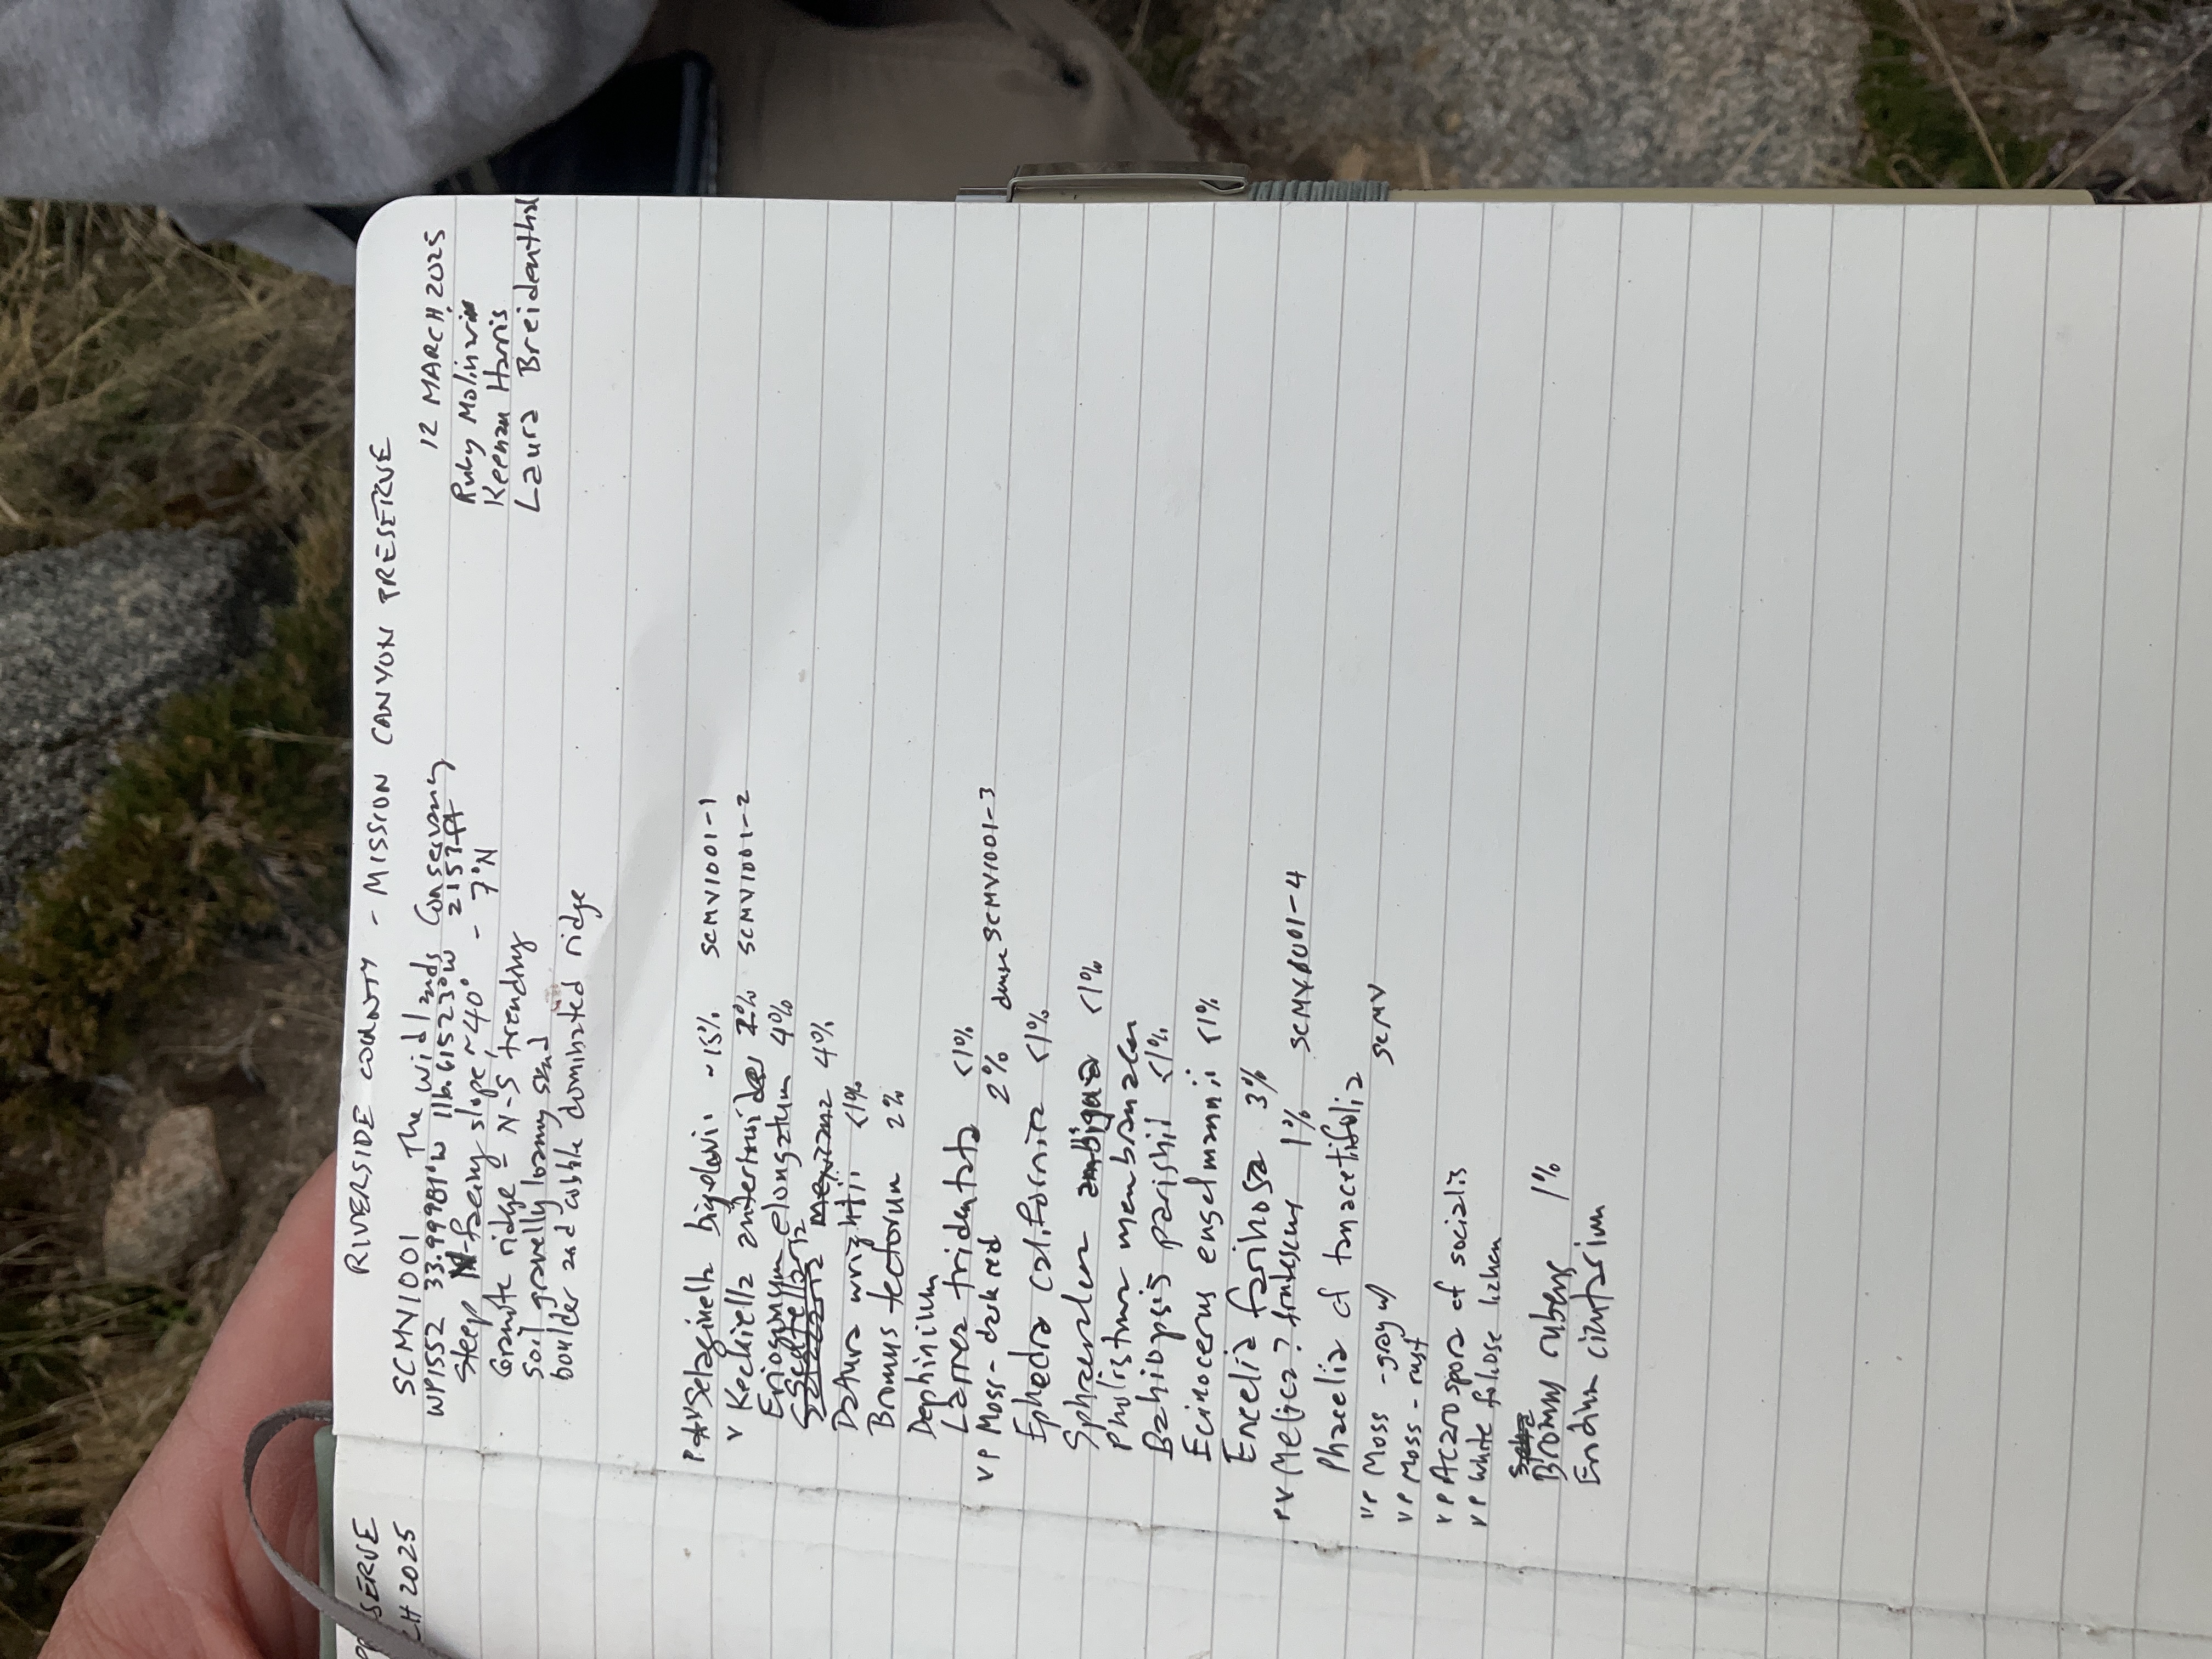 RIVERSIDE COUNTY - MISSION CANYON PRESERVE
SCMV1001 The Wildlands Conservancy 12 MARCH 2025
WP1552 33.99981°N 116.61523°W 2157 ft Ruby Molinari
Steep N-facing slope, ~40° - 7°N Keenan Harris
Granite ridge = N-S trending Laura Breidenthal
Soil gravelly loamy sand
boulder and cobble dominated ridge
Selaginella bigelovii ~15% SCMV1001-1
v Keckiella antirrhinoides 2% SCMV1001-2
Eriogonum elongatum 4%
mexicana 4%
Datura wrightii <1%
Bromus tectorum 2%
Dephinium
Larrea tridentata <1%
VP Moss - dark red 2% dense SCMV1001-3
Ephedra californica <1%
Sphaeralcea ambigua <1%
Pholistoma membranacea
Bahiopsis parishii <1%
Ecinocereus engelmannii <1%
Encelia farinosa 3%
PV Melica? frutescens 1% SCMV1001-4
Phacelia cf tanacetifolia
VP Moss - gray w/ SCMV
VP Moss - rust
VP Acarospora cf socialis
VP white foliose lichen
Bromus rubens 1%
Erodium cicutarium
SERVE
CH 2025